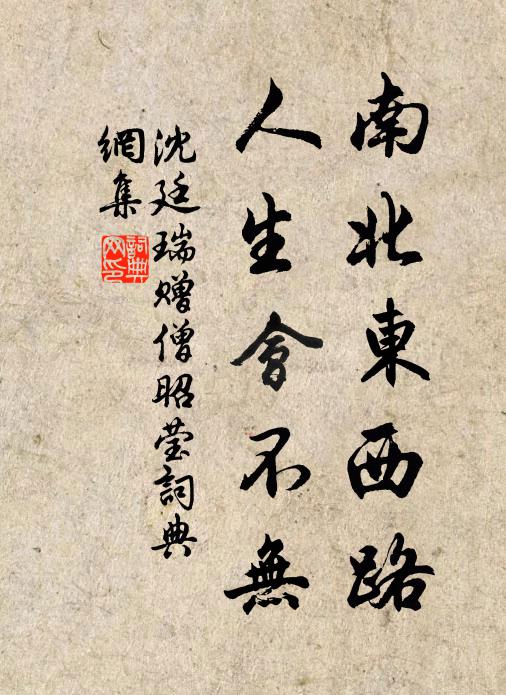 南北東西路
人生會不無
沈廷瑞赠僧昭莹詞典
網集
詞典
网印